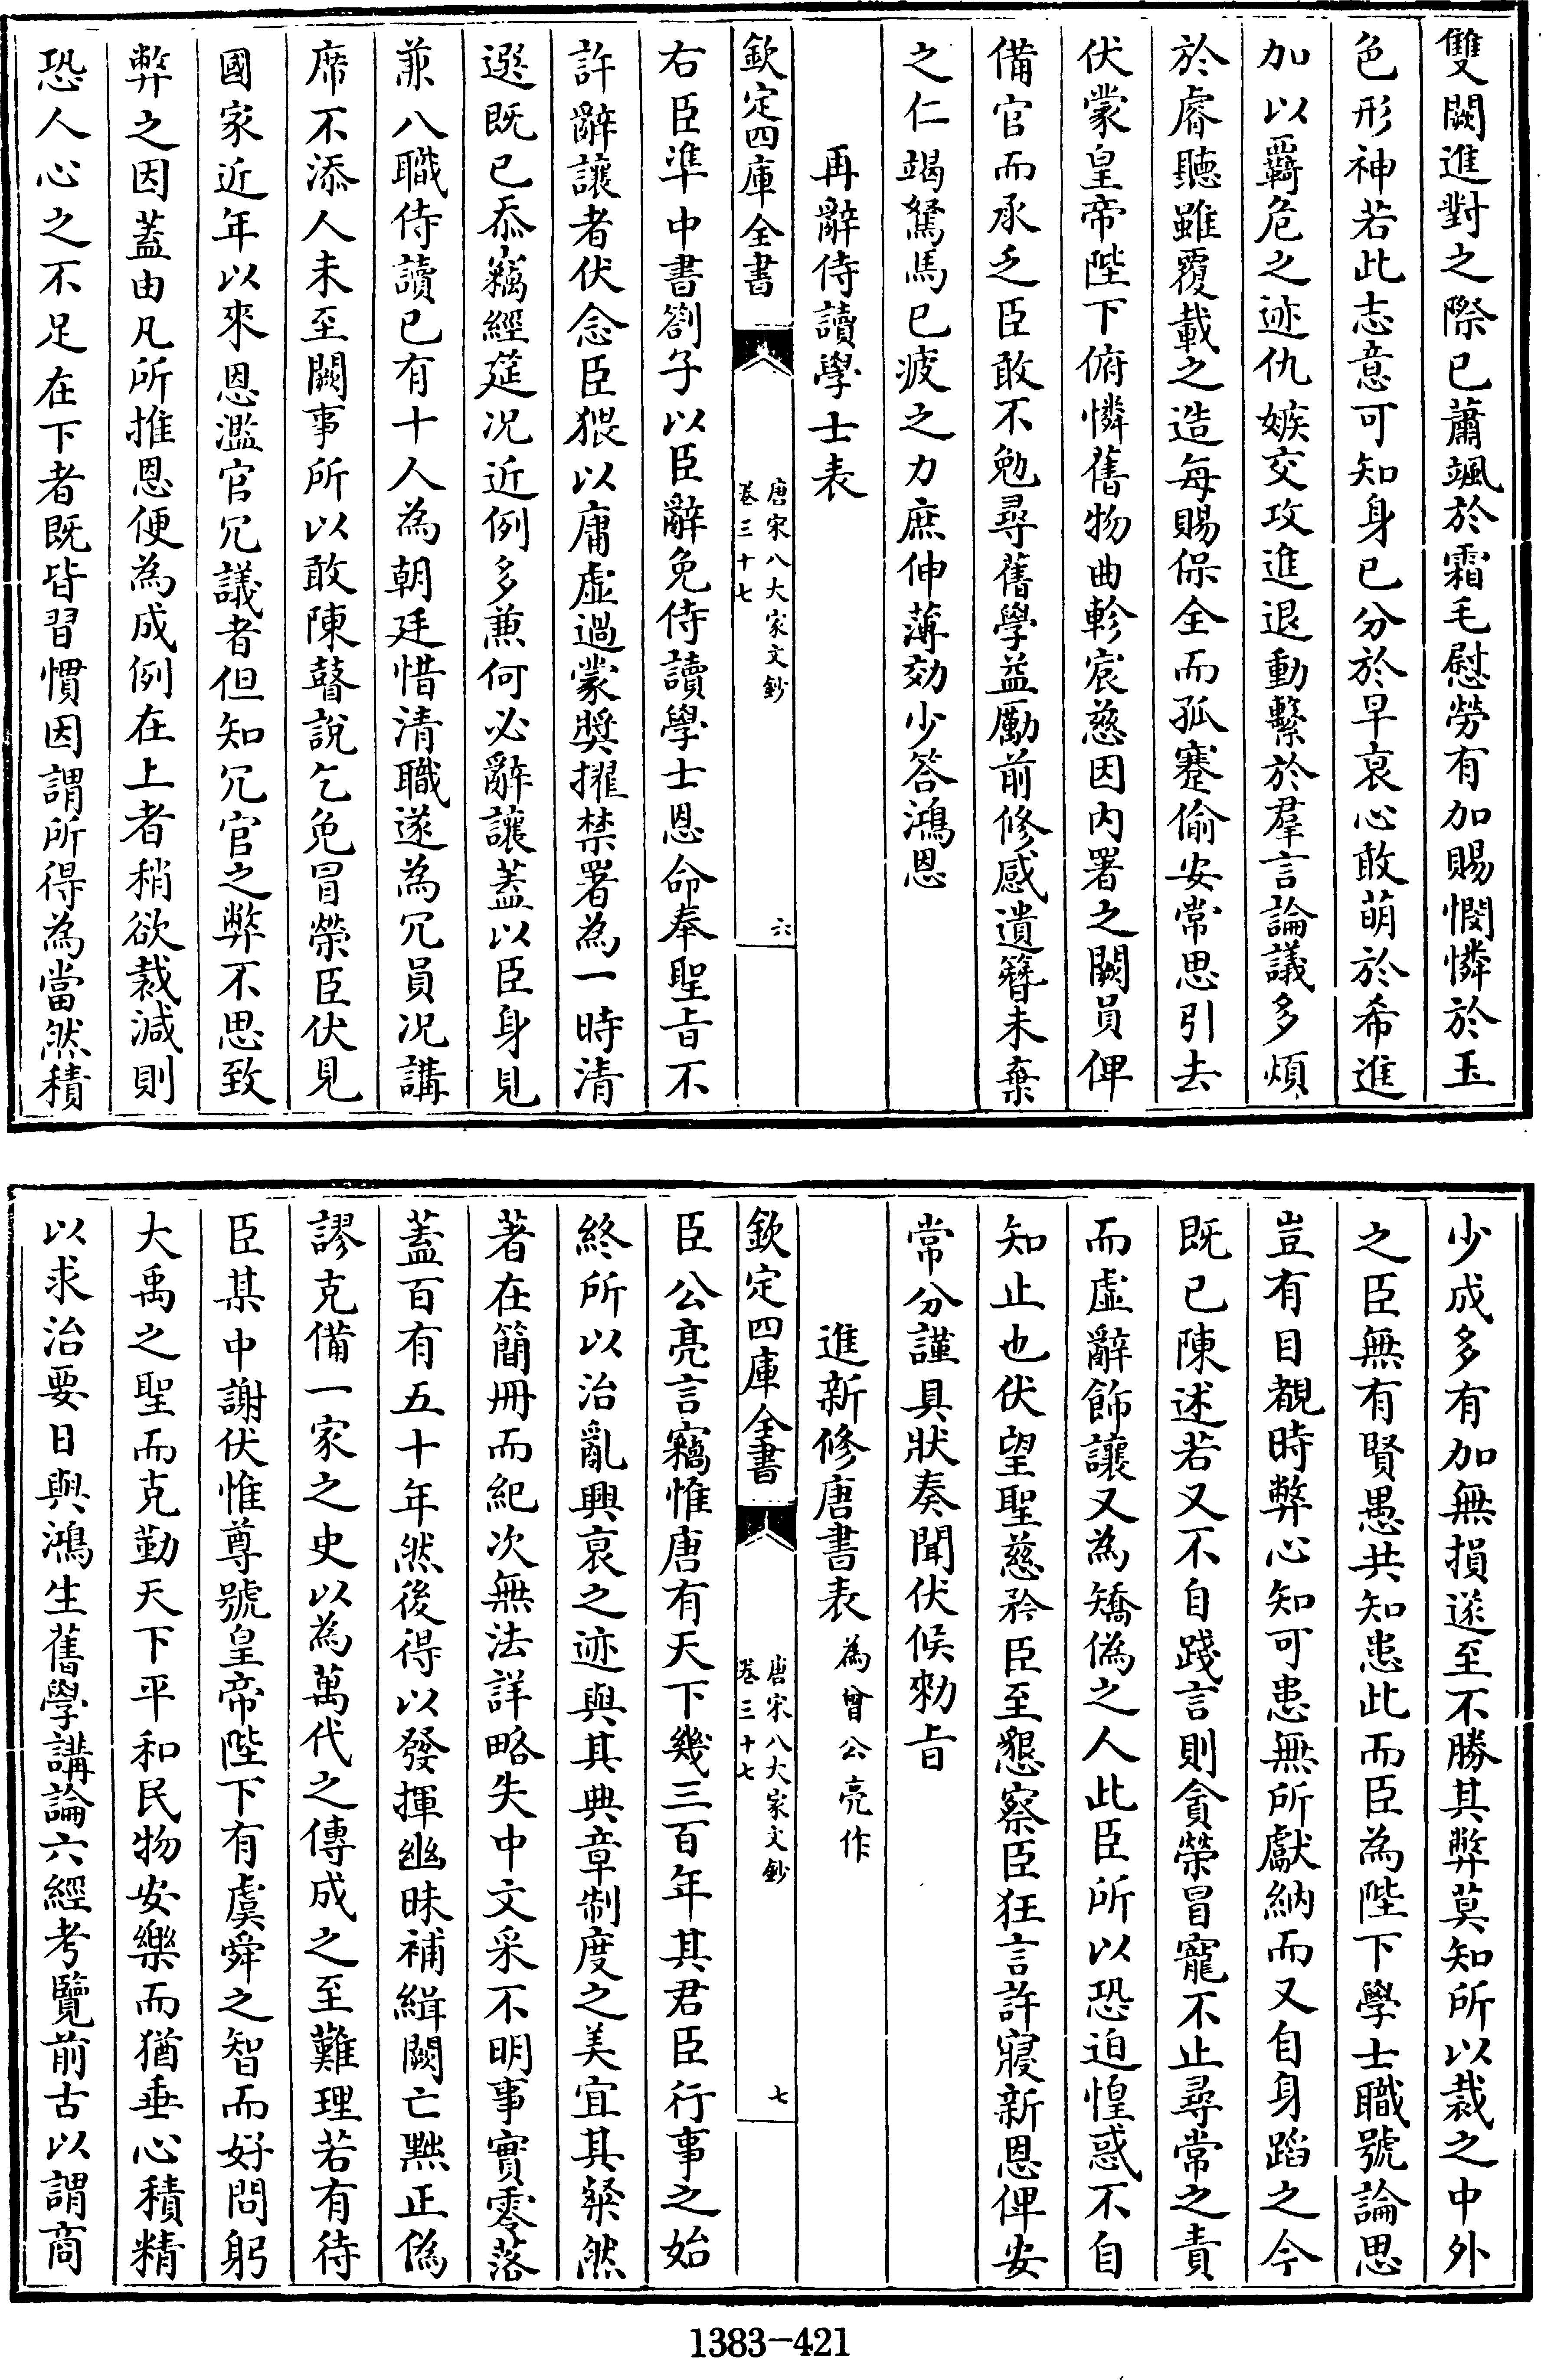 雙闕進對之際已蕭颯於霜毛慰勞有加賜憫憐於玉
色形神若此志意可知身已分於早衰心敢萌於希進
加以覊危之迹仇嫉交攻進退動繫於羣言論議多煩
於睿聽雖覆載之造每賜保全而孤蹇偷安常思引去
伏蒙皇帝陛下俯憐舊物曲軫宸慈因内署之闕員俾
備官而承乏臣敢不勉尋舊學益勵前修感遺簪未棄
之仁竭駑馬已疲之力庶伸薄効少答鴻恩
再辭侍讀學士表
欽定四庫全書
唐宋八大家文鈔
卷三十七
六
右臣準中書劄子以臣辭免侍讀學士恩命奉聖㫖不
許辭讓者伏念臣猥以庸虛過蒙奬擢禁署為一時清
選既已忝竊經筵况近例多兼何必辭讓蓋以臣身見
兼八職侍讀已有十人為朝廷惜清職遂為冗員况講
席不添人未至闕事所以敢陳瞽說乞免冒榮臣伏見
國家近年以來恩濫官冗議者但知冗官之弊不思致
弊之因蓋由凡所推恩便為成例在上者稍欲裁減則
恐人心之不足在下者既皆習慣因謂所得為當然積
少成多有加無損遂至不勝其弊莫知所以裁之中外
之臣無有賢愚共知患此而臣為陛下學士職號論思
豈有目覩時弊心知可患無所獻納而又自身蹈之今
既已陳述若又不自踐言則貪榮冒寵不止尋常之責
而虛辭飾讓又為矯偽之人此臣所以恐迫惶惑不自
知止也伏望聖慈矜臣至懇察臣狂言許寢新恩俾安
常分謹具狀奏聞伏候勑㫖
進新修唐書表為曾公亮作
欽定四庫全書
唐宋八大家文鈔
卷三十七
七
臣公亮言竊惟唐有天下幾三百年其君臣行事之始
終所以治亂興衰之迹與其典章制度之美宜其粲然
著在簡冊而紀次無法詳略失中文采不明事實零落
蓋百有五十年然後得以發揮幽昧補緝闕亡黜正偽
謬克備一家之史以為萬代之傳成之至難理若有待
臣某中謝伏惟尊號皇帝陛下有虞舜之智而好問躬
大禹之聖而克勤天下平和民物安樂而猶垂心積精
以求治要日與鴻生舊學講論六經考覽前古以謂商
1383-421